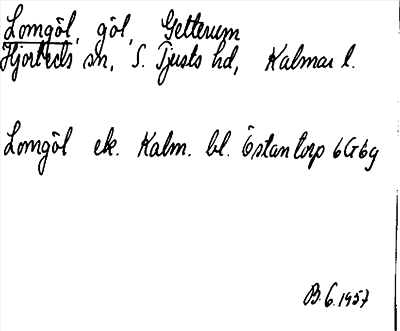 Lomgöl, göl, Getterum
Hjorteds sn, S. Tjusts hd, Kalmar l.
Lomgöl ek. Kalm. bl. Östantorp 6G6g
B. 6. 1957